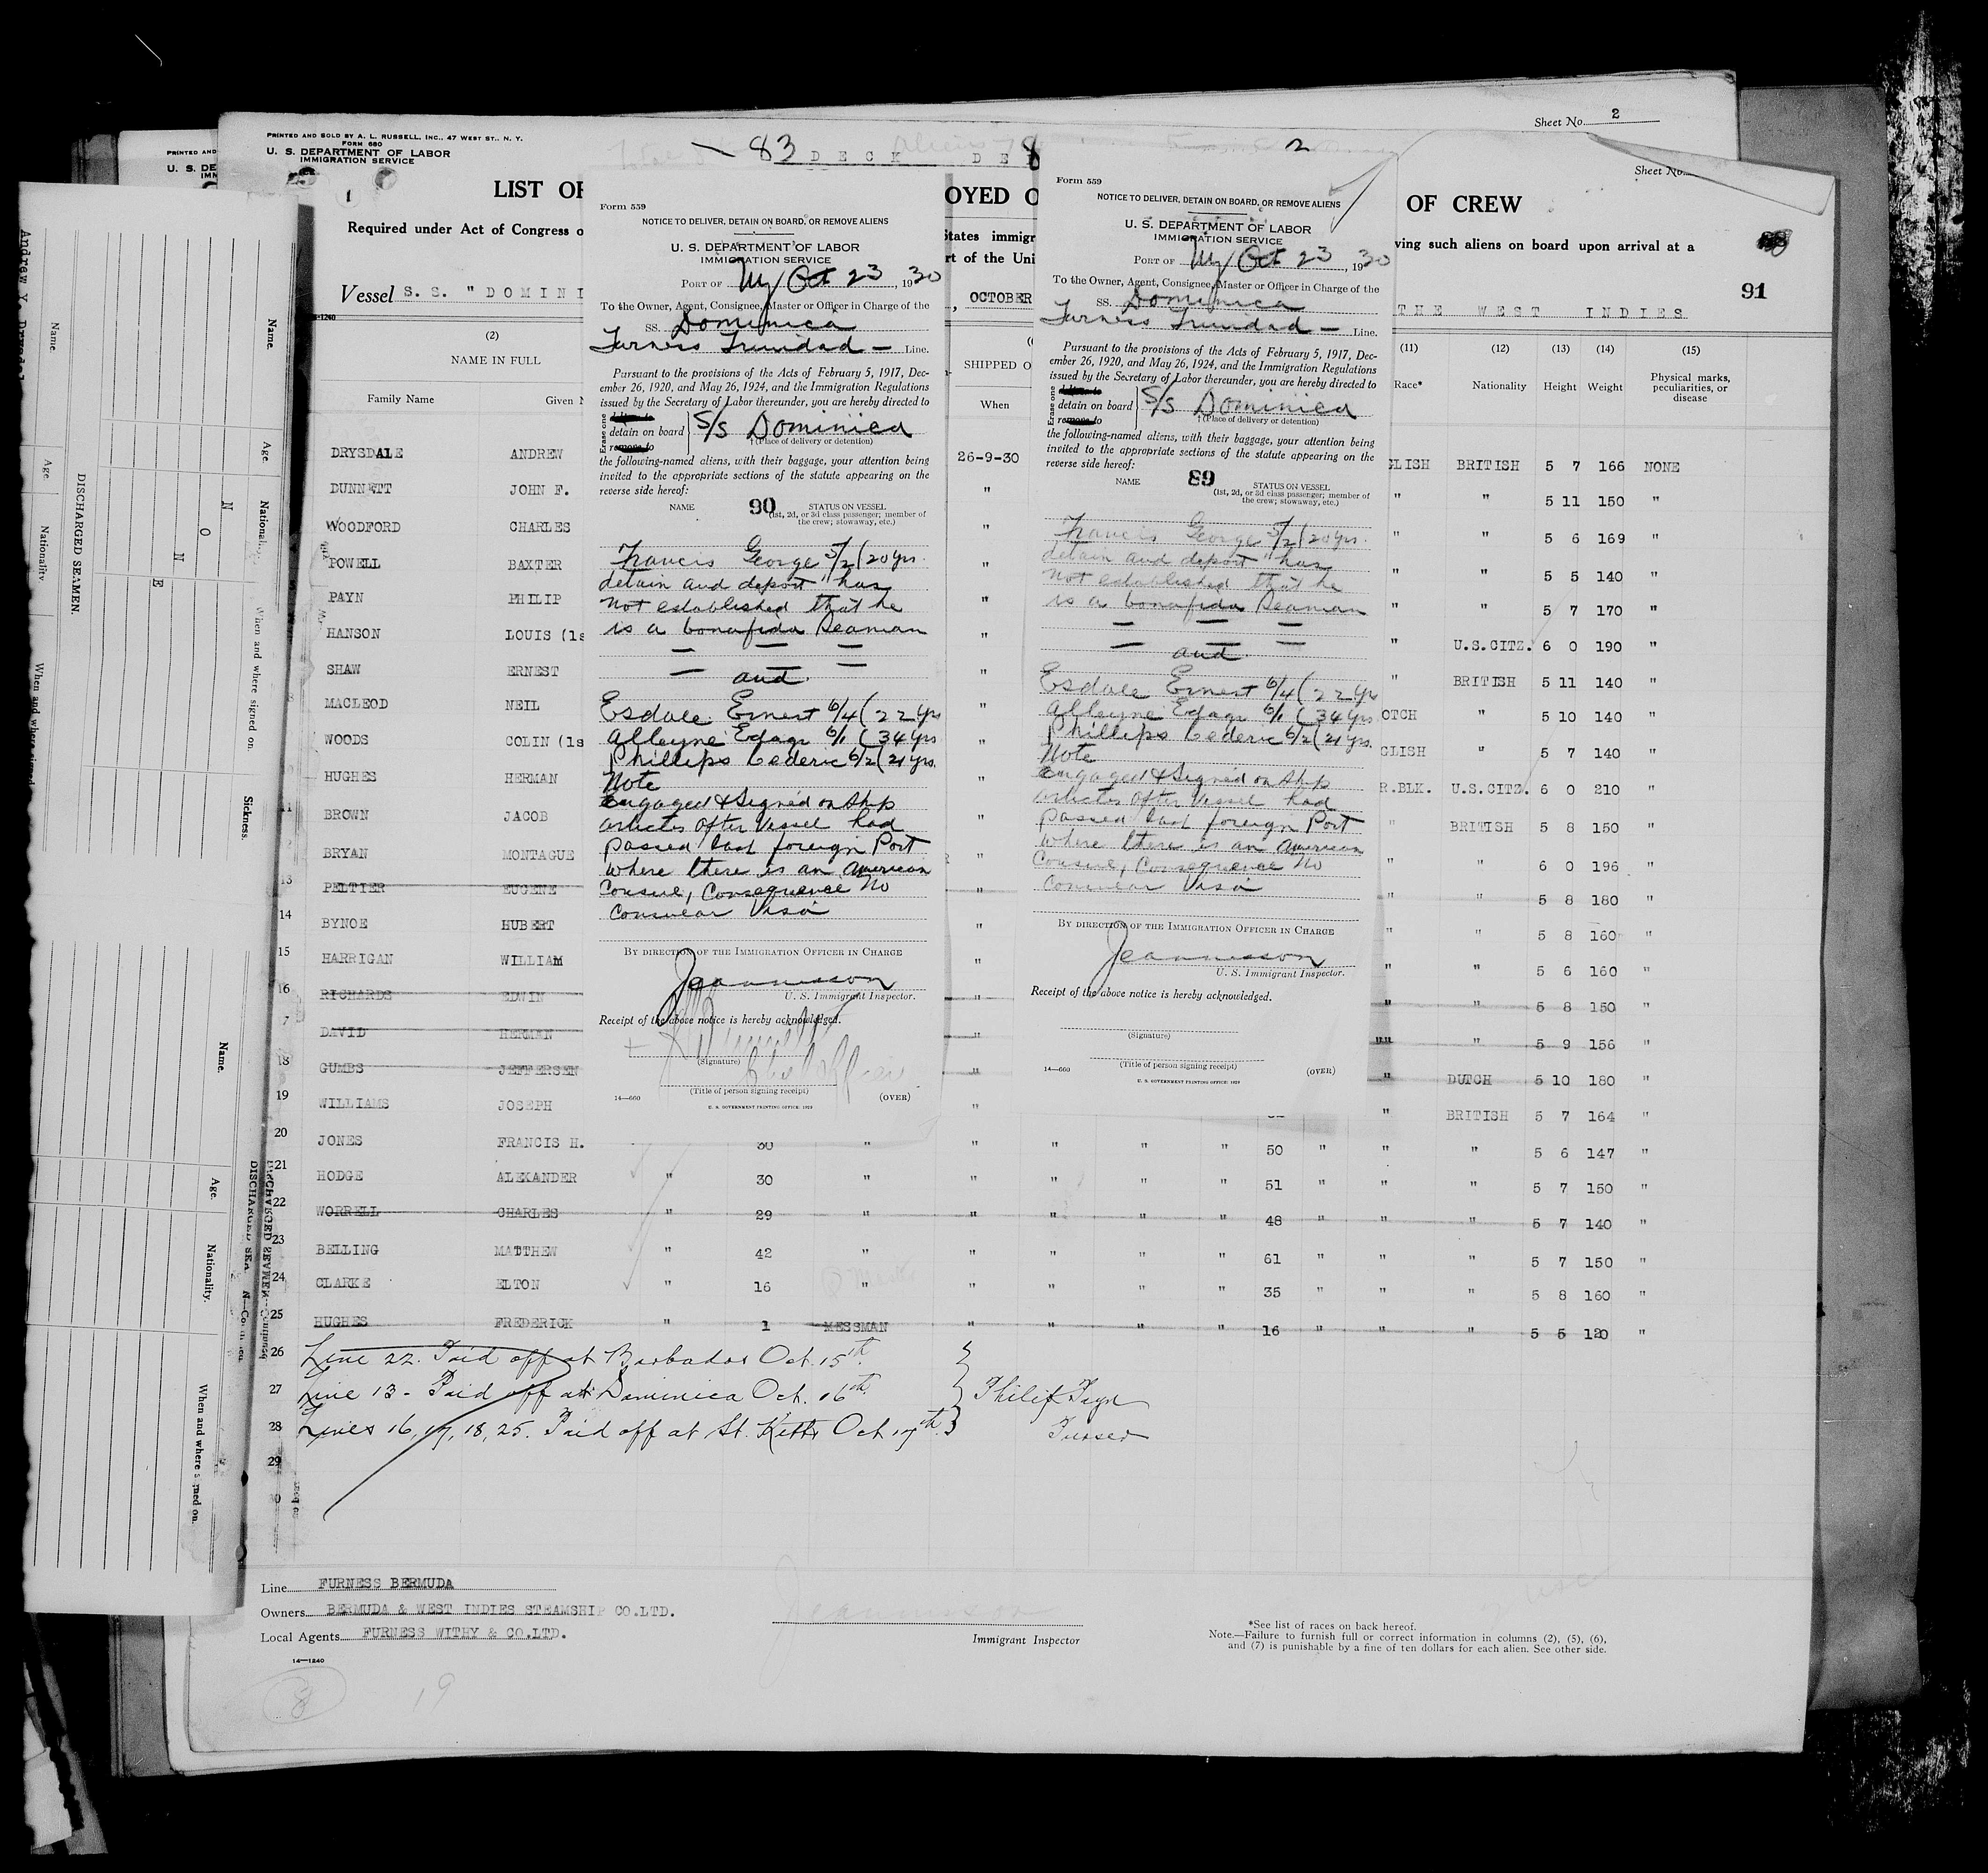 Sheet No. 2
PRINTED AND SOLD BY A. L. RUSSELL, INC., 47 WEST ST., N. Y.
FORM 680
U. S. DEPARTMENT OF LABOR
IMMIGRATION SERVICE
PRINTED AND
U. S. DE
83 DECK DE 8
2
Sheet No.
1
LIST OF
OYED O
OF CREW
Required under Act of Congress o
States immigr
ving such aliens on board upon arrival at a
rt of the Uni
91
Vessel S. S. "DOMINI
, OCTOBER
THE WEST INDIES
(2)
NAME IN FULL
Family Name
Given N
SHIPPED O
When
(11)
Race*
(12)
Nationality
(13)
Height
(14)
Weight
(15)
Physical marks, peculiarities, or disease
DRYSDALE ANDREW 26-9-30 GLISH BRITISH 5 7 166 NONE
DUNNETT JOHN F. " " " 5 11 150 "
WOODFORD CHARLES " " " 5 6 169 "
POWELL BAXTER " " " 5 5 140 "
PAYN PHILIP " " " 5 7 170 "
HANSON LOUIS (1s " " U.S.CITZ. 6 0 190 "
SHAW ERNEST " " BRITISH 5 11 140 "
MACLEOD NEIL " OTCH " 5 10 140 "
WOODS COLIN (1s " GLISH " 5 7 140 "
HUGHES HERMAN " R.BLK. U.S.CITZ. 6 0 210 "
11 BROWN JACOB " " BRITISH 5 8 150 "
BRYAN MONTAGUE " " " 6 0 196 "
13 PELTIER EUGENE " " " 5 8 180 "
14 BYNOE HUBERT " " " 5 8 160 "
15 HARRIGAN WILLIAM " " " 5 6 160 "
16 RICHARDS EDWIN " " " 5 8 150 "
7 DAVID HERMAN " " " 5 9 156 "
18 GUMBS JEFFERSEN " " DUTCH 5 10 180 "
19 WILLIAMS JOSEPH " " BRITISH 5 7 164 "
20 JONES FRANCIS H. 30 " " " " " 50 " " " 5 6 147 "
21 HODGE ALEXANDER " 30 " " " " " 51 " " " 5 7 150 "
22 WORRELL CHARLES " 29 " " " " " 48 " " " 5 7 140 "
23 BELLING MATTHEW " 42 " " " " " 61 " " " 5 7 150 "
24 CLARKE ELTON " 16 " " " " " 35 " " " 5 8 160 "
25 HUGHES FREDERICK " 1 MESSMAN " " " " 16 " " " 5 5 120 "
26 Line 22. Paid off at Barbados Oct. 15th.
27 Line 13 - Paid off at Dominica Oct. 16th.
Philip Payn
28 Lines 16, 17, 18, 25. Paid off at St. Kitts Oct 17th.
Purser
29
30
Line FURNESS BERMUDA
Owners BERMUDA & WEST INDIES STEAMSHIP CO.LTD.
Local Agents FURNESS WITHY & CO.LTD.
14—1240
Immigrant Inspector
*See list of races on back hereof.
Note.—Failure to furnish full or correct information in columns (2), (5), (6),
and (7) is punishable by a fine of ten dollars for each alien. See other side.
8
19
Form 559
NOTICE TO DELIVER, DETAIN ON BOARD, OR REMOVE ALIENS
U. S. DEPARTMENT OF LABOR
IMMIGRATION SERVICE
PORT OF Ny Oct 23, 1930
To the Owner, Agent, Consignee, Master or Officer in Charge of the
SS. Dominica
Furness Trinidad — Line.
Pursuant to the provisions of the Acts of February 5, 1917, Dec-
ember 26, 1920, and May 26, 1924, and the Immigration Regulations
issued by the Secretary of Labor thereunder, you are hereby directed to
Erase one
detain on board
remove to
S/S Dominica
†(Place of delivery or detention)
the following-named aliens, with their baggage, your attention being
invited to the appropriate sections of the statute appearing on the
reverse side hereof:
NAME
90
STATUS ON VESSEL
(1st, 2d, or 3d class passenger; member of
the crew; stowaway, etc.)
Francis George 5/2 (20 yrs.
detain and deport "has
not established that he
is a bonafida Seaman
— — —
— and. —
Esdale Ernest 6/4 (22 yrs
Alleyne Edagr 6/1 (34 yrs.
Phillips Cederic 6/2 (21 yrs.
Note
Engaged & Signed on Ship
articles after Vessel had
passed last foreign Port
where there is an American
Consul, Consequence No
Consular Visa
BY DIRECTION OF THE IMMIGRATION OFFICER IN CHARGE
Jeannisson
U. S. Immigrant Inspector.
Receipt of the above notice is hereby acknowledged.
(Signature)
(Title of person signing receipt)
14—660
(OVER)
U. S. GOVERNMENT PRINTING OFFICE: 1929
Form 559
NOTICE TO DELIVER, DETAIN ON BOARD, OR REMOVE ALIENS
U. S. DEPARTMENT OF LABOR
IMMIGRATION SERVICE
PORT OF Ny Oct 23, 1930
To the Owner, Agent, Consignee, Master or Officer in Charge of the
SS. Dominica
Furness Trinidad — Line.
Pursuant to the provisions of the Acts of February 5, 1917, Dec-
ember 26, 1920, and May 26, 1924, and the Immigration Regulations
issued by the Secretary of Labor thereunder, you are hereby directed to
Erase one
detain on board
remove to
S/S Dominica
†(Place of delivery or detention)
the following-named aliens, with their baggage, your attention being
invited to the appropriate sections of the statute appearing on the
reverse side hereof:
NAME
89
STATUS ON VESSEL
(1st, 2d, or 3d class passenger; member of
the crew; stowaway, etc.)
Francis George 5/2 (20 yrs.
detain and deport "has
not established that he
is a bonafida Seaman
— — —
— and. —
Esdale Ernest 6/4 (22 yrs
Alleyne Edagr 6/1 (34 yrs.
Phillips Cederic 6/2 (21 yrs.
Note
Engaged & Signed on Ship
articles after Vessel had
passed last foreign Port
where there is an American
Consul, Consequence No
Consular Visa
BY DIRECTION OF THE IMMIGRATION OFFICER IN CHARGE
Jeannisson
U. S. Immigrant Inspector.
Receipt of the above notice is hereby acknowledged.
(Signature)
(Title of person signing receipt)
14—660
(OVER)
U. S. GOVERNMENT PRINTING OFFICE: 1929
DISCHARGED SEAMEN.
Name.
Age.
Nationality.
When and where signed on.
Sickness.
N O N E
Name.
Age.
Nationality.
When and where signed on.